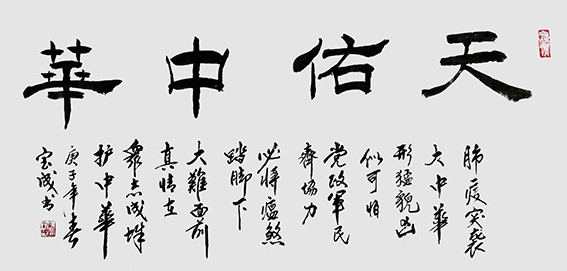 天佑中華
肺疫突襲
大中华
形猛貌凶
似可怕
党政军民
齊協力
必将瘟煞
踏脚下
大難面前
真情在
衆志成城
护中華
庚子年春
宝成书